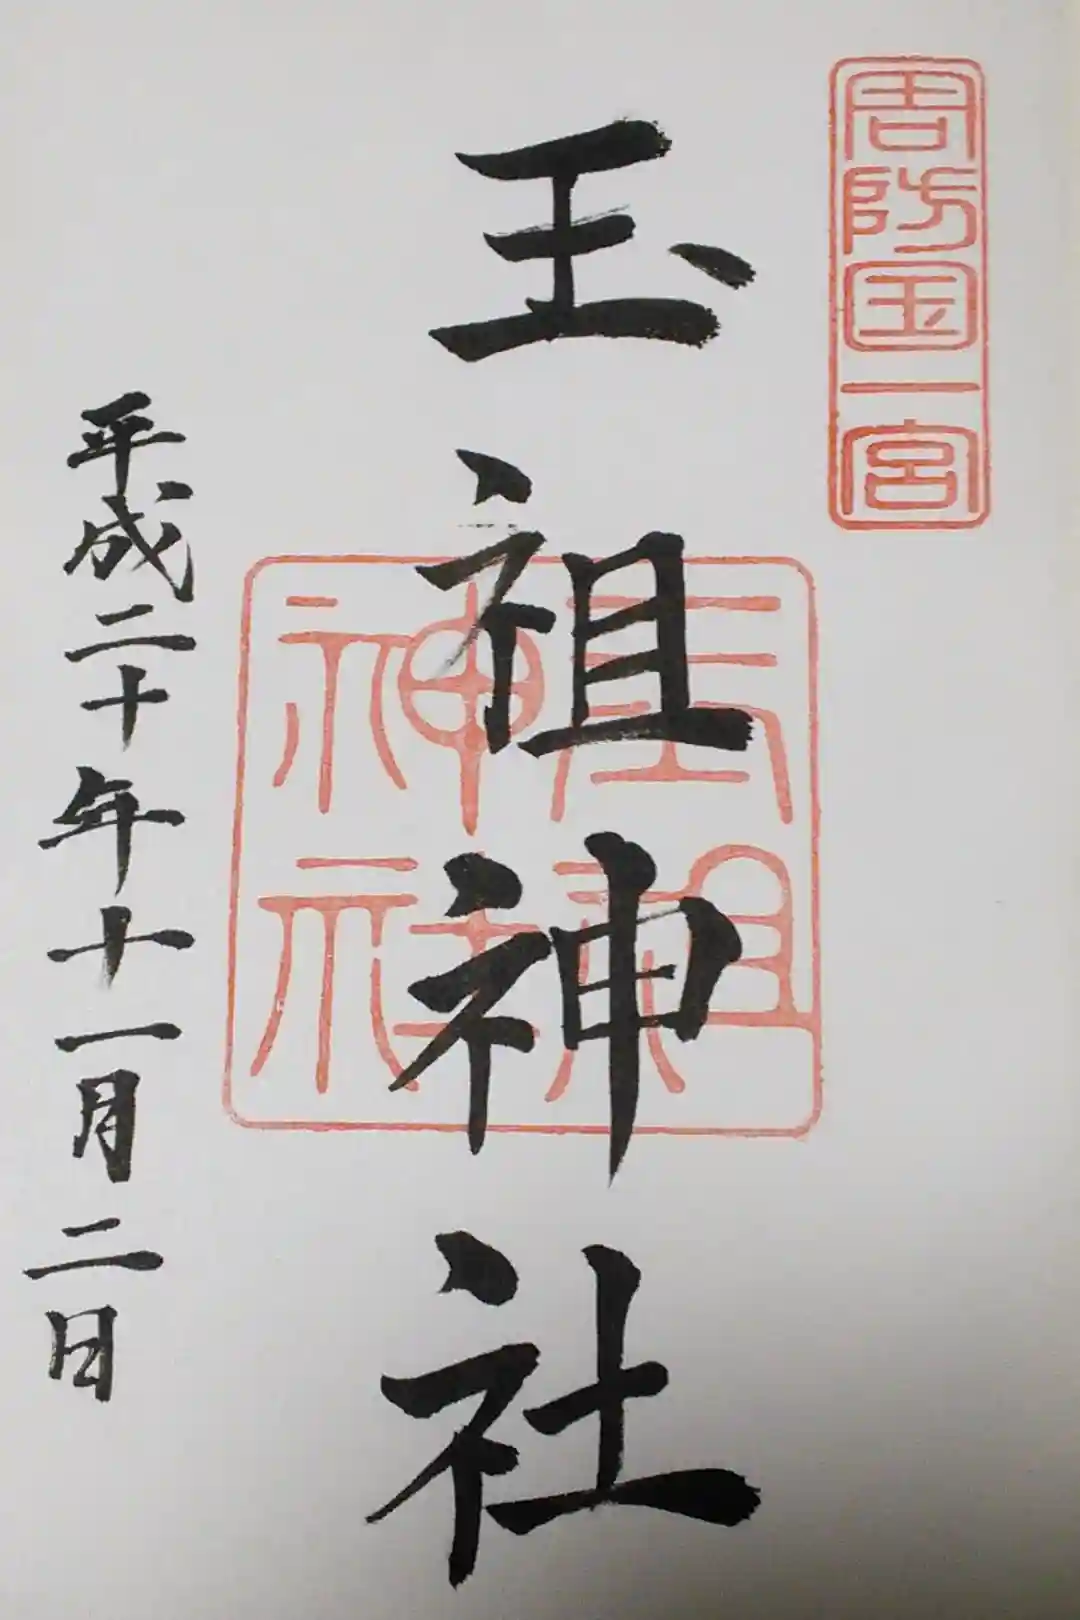 周防国一宮
玉祖神社
玉祖
神社
平成二十年十一月二日